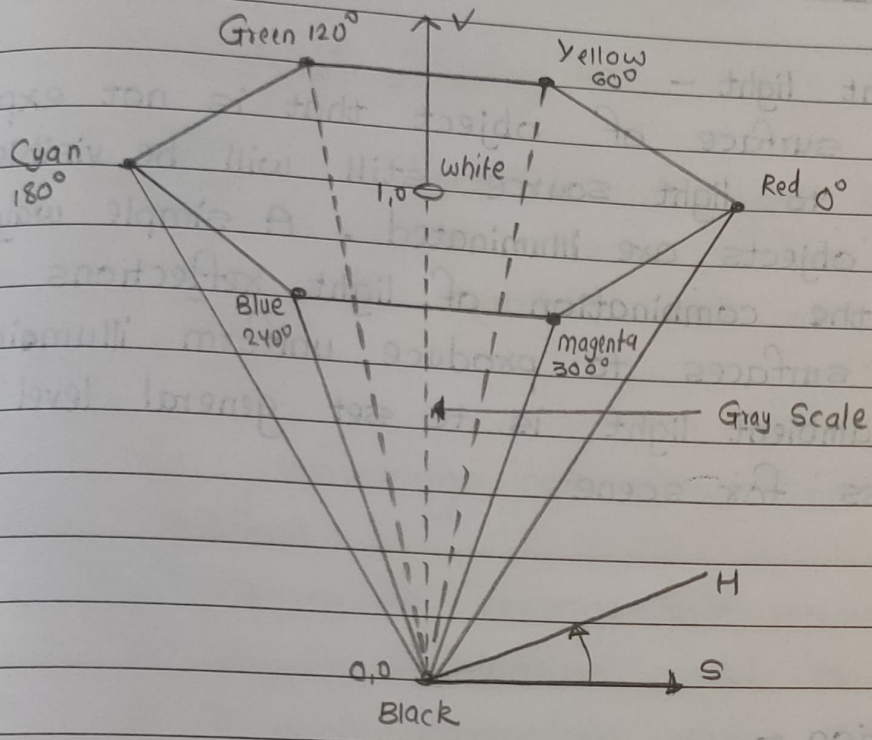 Green 120°
V
Yellow
60°
Cyan
180°
white
1,0
Red 0°
Blue
240°
magenta
300°
Gray Scale
H
0,0
S
Black